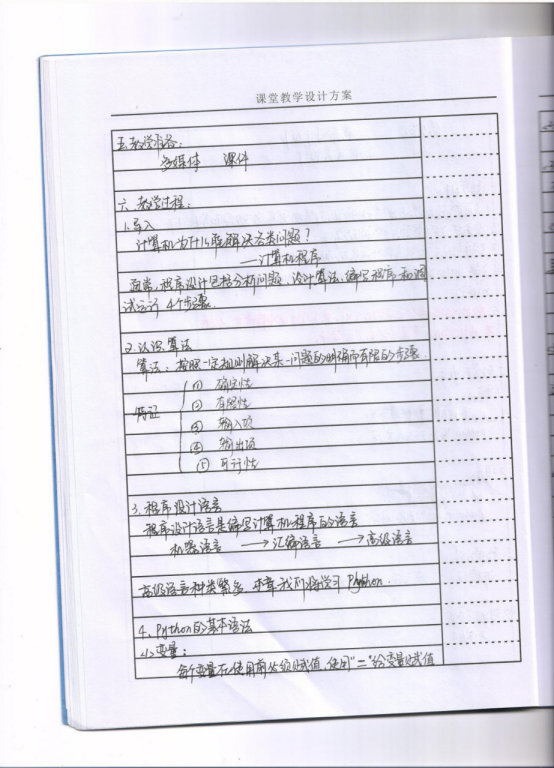 课堂教学设计方案
五.教学准备:
多媒体 课件
六.教学过程:
1.导入
计算机为什么能解决各类问题?
——计算机程序
程序设计包括分析问题、设计算法、编写程序和调
试运行 4个步骤.
2.认识算法
算法:按照一定规则解决某一问题的明确而有限的步骤.
特证
① 确定性
② 有限性
③ 输入项
④ 输出项
⑤ 可行性
3.程序设计语言
程序设计语言是编写计算机程序的语言
机器语言 → 汇编语言 → 高级语言
高级语言种类繁多,本章我们将学习Python.
4、Python的基本语法
<1>变量:
每个变量在使用前必须赋值,使用"="给变量赋值